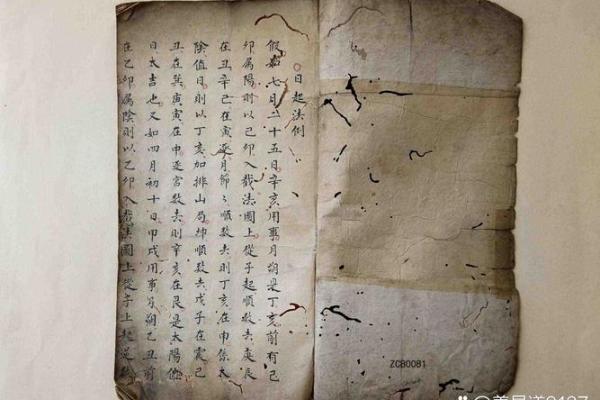 日起法例
假如七月二十五日辛亥用事月朔是丁亥前有己
卯属陽則以己卯入截法圖上從子起順数去庚辰
在丑辛己在寅逐月節〻順数去則丁亥在申係太
陰值日則以丁亥加排山局掃順数去戊子在震己
丑在巽寅寅在中逐宮数去則辛亥在艮是太陽
日大吉也又如四月初十日甲戌用事月朔乙丑前
在乙卯属陰則以乙卯入截法圖上從子上起逆
ZCB0081